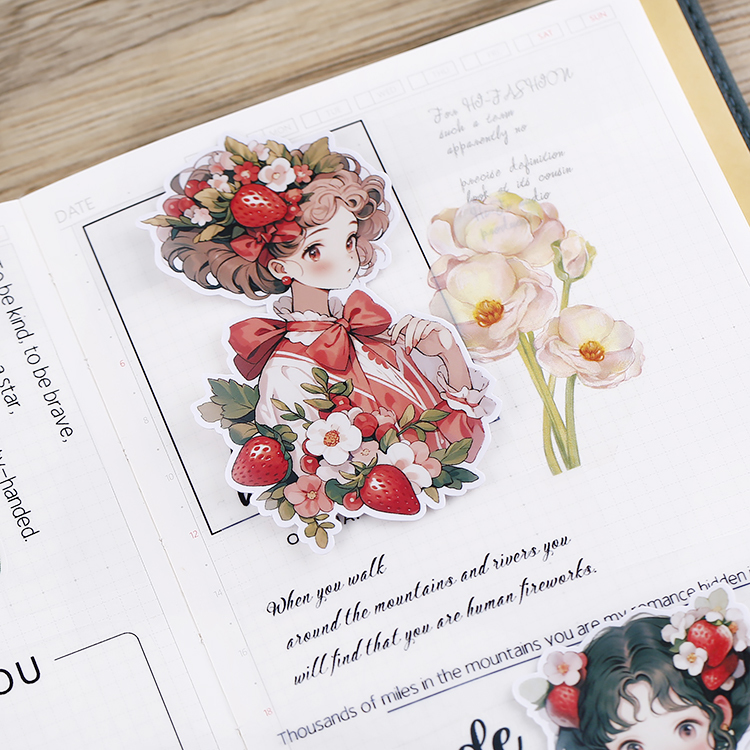 SAT
SUN
DATE
For HI-FASHION
such a term
apparently no
precise definition
of its cousin
to be kind, to be brave,
a star,
-handed.
6
12
When you walk
around the mountains and rivers you
will find that you are human fireworks.
14
18
Thousands of miles in the mountains you are my romance hidden i
OU
de